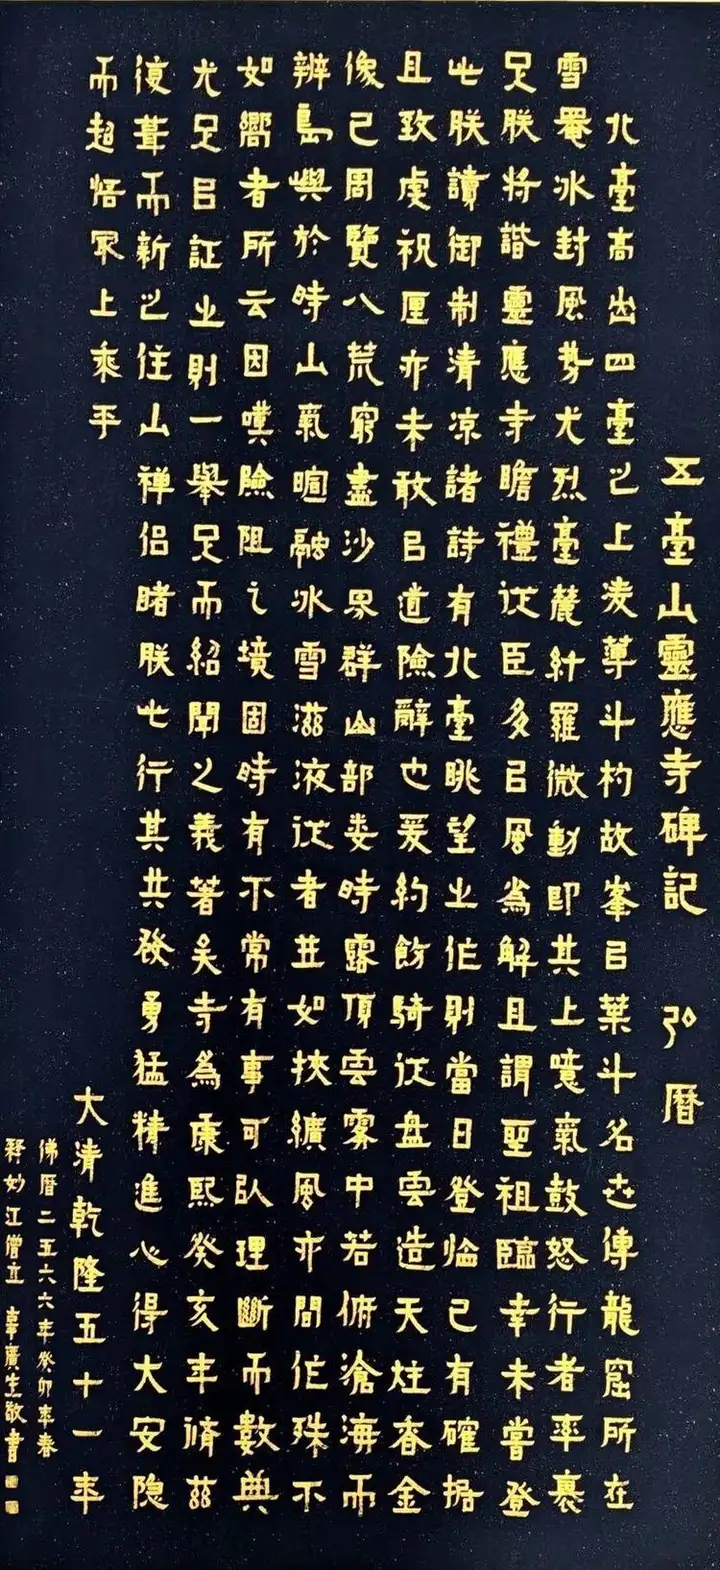 五臺山靈應寺碑記　弘曆
北臺高出四臺之上凌蕚斗杓故峯㠯葉斗名世傳龍窟所在
雪罨冰封風势尤烈臺麓紆羅微動即其上噫氣鼓怒行者率裹
足朕将諧靈應寺瞻禮从臣多㠯風為解且謂聖祖臨幸未嘗登
此朕讀御制清凉諸詩有北臺眺望之作則當日登临已有確据
且致虔祝厘亦未敢㠯道險辭也爰約飭騎从盘雲造天炷香金
像已周覽八荒窮盡沙界群山部娄時露頂雲雾中若俯滄海而
辨島嶼於時山氣暄融冰雪滋液从者並如挾纊風亦間作殊不
如嚮者所云因嘆險阻之境固時有不常有事可㠯理斷而數典
尤足㠯証之則一舉足而紹聞之義著矣寺為康熙癸亥年脩茲
復葺而新之住山禅侣睹朕此行其共發勇猛精進心得大安隐
而超悟冣上乘乎
大清乾隆五十一年
佛曆二五六六年癸卯年春
释妙江僧立　辜廣生敬書